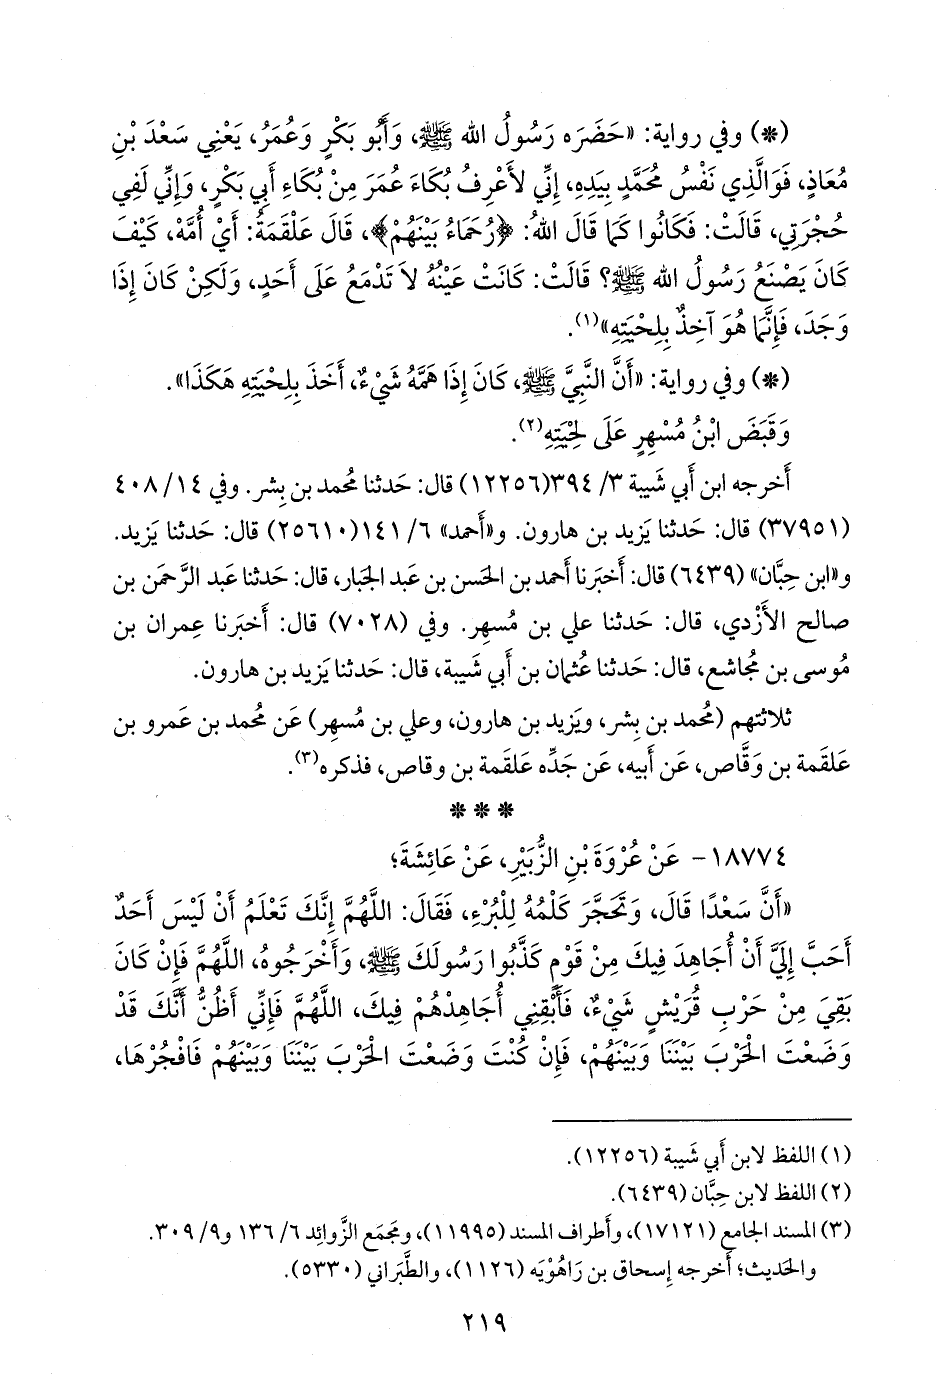 (*) وفي رواية: «حَضَرَه رَسُولُ الله ﷺ، وَأَبُو بَكْرٍ وَعُمَرُ، يَعْنِي سَعْدَ بْنِ
مُعَاذٍ، فَوَالَّذِي نَفْسُ مُحَمَّدٍ بِيَدِهِ، إِنِّي لأَعْرِفُ بُكَاءَ عُمَرَ مِنْ بُكَاءِ أَبِي بَكْرٍ، وَإِنِّي لَفِي
حُجْرَتِي، قَالَتْ: فَكَانُوا كَمَا قَالَ اللهُ: ﴿رُحَمَاءُ بَيْنَهُمْ﴾، قَالَ عَلْقَمَةُ: أَيْ أُمَّهْ، كَيْفَ
كَانَ يَصْنَعُ رَسُولُ الله ﷺ؟ قَالَتْ: كَانَتْ عَيْنُهُ لاَ تَدْمَعُ عَلَى أَحَدٍ، وَلَكِنْ كَانَ إِذَا
وَجَدَ، فَإِنَّمَا هُوَ آخِذٌ بِلِحْيَتِهِ»(١).
(*) وفي رواية: «أَنَّ النَّبِيَّ ﷺ، كَانَ إِذَا هَمَّهُ شَيْءٌ، أَخَذَ بِلِحْيَتِهِ هَكَذَا».
وَقَبَضَ ابْنُ مُسْهِرٍ عَلَى لِحْيَتِهِ(٢).
أَخرجه ابن أَبي شَيبة ٣/ ٣٩٤(١٢٢٥٦) قال: حَدثنا مُحمد بن بِشر. وفي ١٤/ ٤٠٨
(٣٧٩٥١) قال: حَدثنا يَزيد بن هارون. و«أَحمد» ٦/ ١٤١(٢٥٦١٠) قال: حَدثنا يَزيد.
و«ابن حِبَّان» (٦٤٣٩) قال: أَخبَرنا أَحمد بن الحَسن بن عَبد الجَبار، قال: حَدثنا عَبد الرَّحمَن بن
صالح الأَزْدي، قال: حَدثنا علي بن مُسهِر. وفي (٧٠٢٨) قال: أَخبَرنا عِمران بن
مُوسى بن مُجاشع، قال: حَدثنا عُثمان بن أَبي شَيبة، قال: حَدثنا يَزيد بن هارون.
ثلاثتهم (مُحمد بن بِشر، ويَزيد بن هارون، وعلي بن مُسهِر) عَن مُحمد بن عَمرو بن
عَلقَمة بن وَقَّاص، عَن أَبيه، عَن جَدِّه عَلقَمة بن وقاص، فذكره(٣).
* * *
١٨٧٧٤- عَنْ عُرْوَةَ بْنِ الزُّبَيْرِ، عَنْ عَائِشَةَ؛
«أَنَّ سَعْدًا قَالَ، وَتَحَجَّرَ كَلْمُهُ لِلْبُرْءِ، فَقَالَ: اللَّهُمَّ إِنَّكَ تَعْلَمُ أَنْ لَيْسَ أَحَدٌ
أَحَبَّ إِلَيَّ أَنْ أُجَاهِدَ فِيكَ مِنْ قَوْمٍ كَذَّبُوا رَسُولَكَ ﷺ، وَأَخْرَجُوهُ، اللَّهُمَّ فَإِنْ كَانَ
بَقِيَ مِنْ حَرْبِ قُرَيْشٍ شَيْءٌ، فَأَبْقِنِي أُجَاهِدْهُمْ فِيكَ، اللَّهُمَّ فَإِنِّي أَظُنُّ أَنَّكَ قَدْ
وَضَعْتَ الْحَرْبَ بَيْنَنَا وَبَيْنَهُمْ، فَإِنْ كُنْتَ وَضَعْتَ الْحَرْبَ بَيْنَنَا وَبَيْنَهُمْ فَافْجُرْهَا،
(١) اللفظ لابن أَبي شَيبة (١٢٢٥٦).
(٢) اللفظ لابن حِبَّان (٦٤٣٩).
(٣) المسند الجامع (١٧١٢١)، وأَطراف المسند (١١٩٩٥)، ومَجمَع الزَّوائِد ٦/ ١٣٦ و٩/ ٣٠٩.
والحَديث؛ أَخرجه إِسحاق بن رَاهُوْيَه (١١٢٦)، والطَّبَراني (٥٣٣٠).
٢١٩